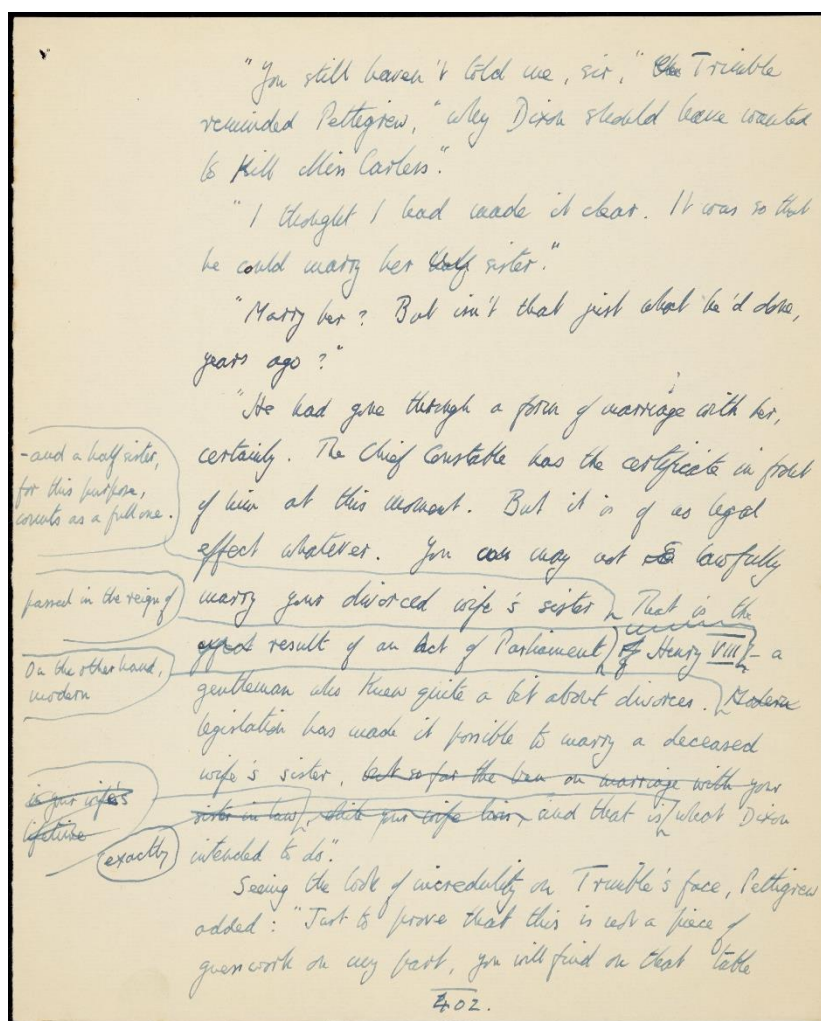 "You still haven't told me, sir," Trimble
reminded Pettigrew, "why Dixon should have wanted
to kill Miss Carless."
"I thought I had made it clear. It was so that
he could marry her half sister."
"Marry her? But isn't that just what he'd done,
years ago?"
"He had gone through a form of marriage with her,
certainly. The Chief Constable has the certificate in front
of him at this moment. But it is of no legal
effect whatever. You can may not lawfully
marry your divorced wife's sister
- and a half sister,
for this purpose,
counts as a full one.
That is the
effect result of an Act of Parliament
passed in the reign of
of Henry VIII - a
gentleman who knew quite a bit about divorces.
On the other hand,
modern
Modern
legislation has made it possible to marry a deceased
wife's sister, but so far the ban on marriage with your
sister in law, while your wife lives, and that is what Dixon
in your wife's
lifetime
exactly
intended to do".
Seeing the look of incredulity on Trimble's face, Pettigrew
added: "Just to prove that this is not a piece of
guesswork on my part, you will find on that table
402.